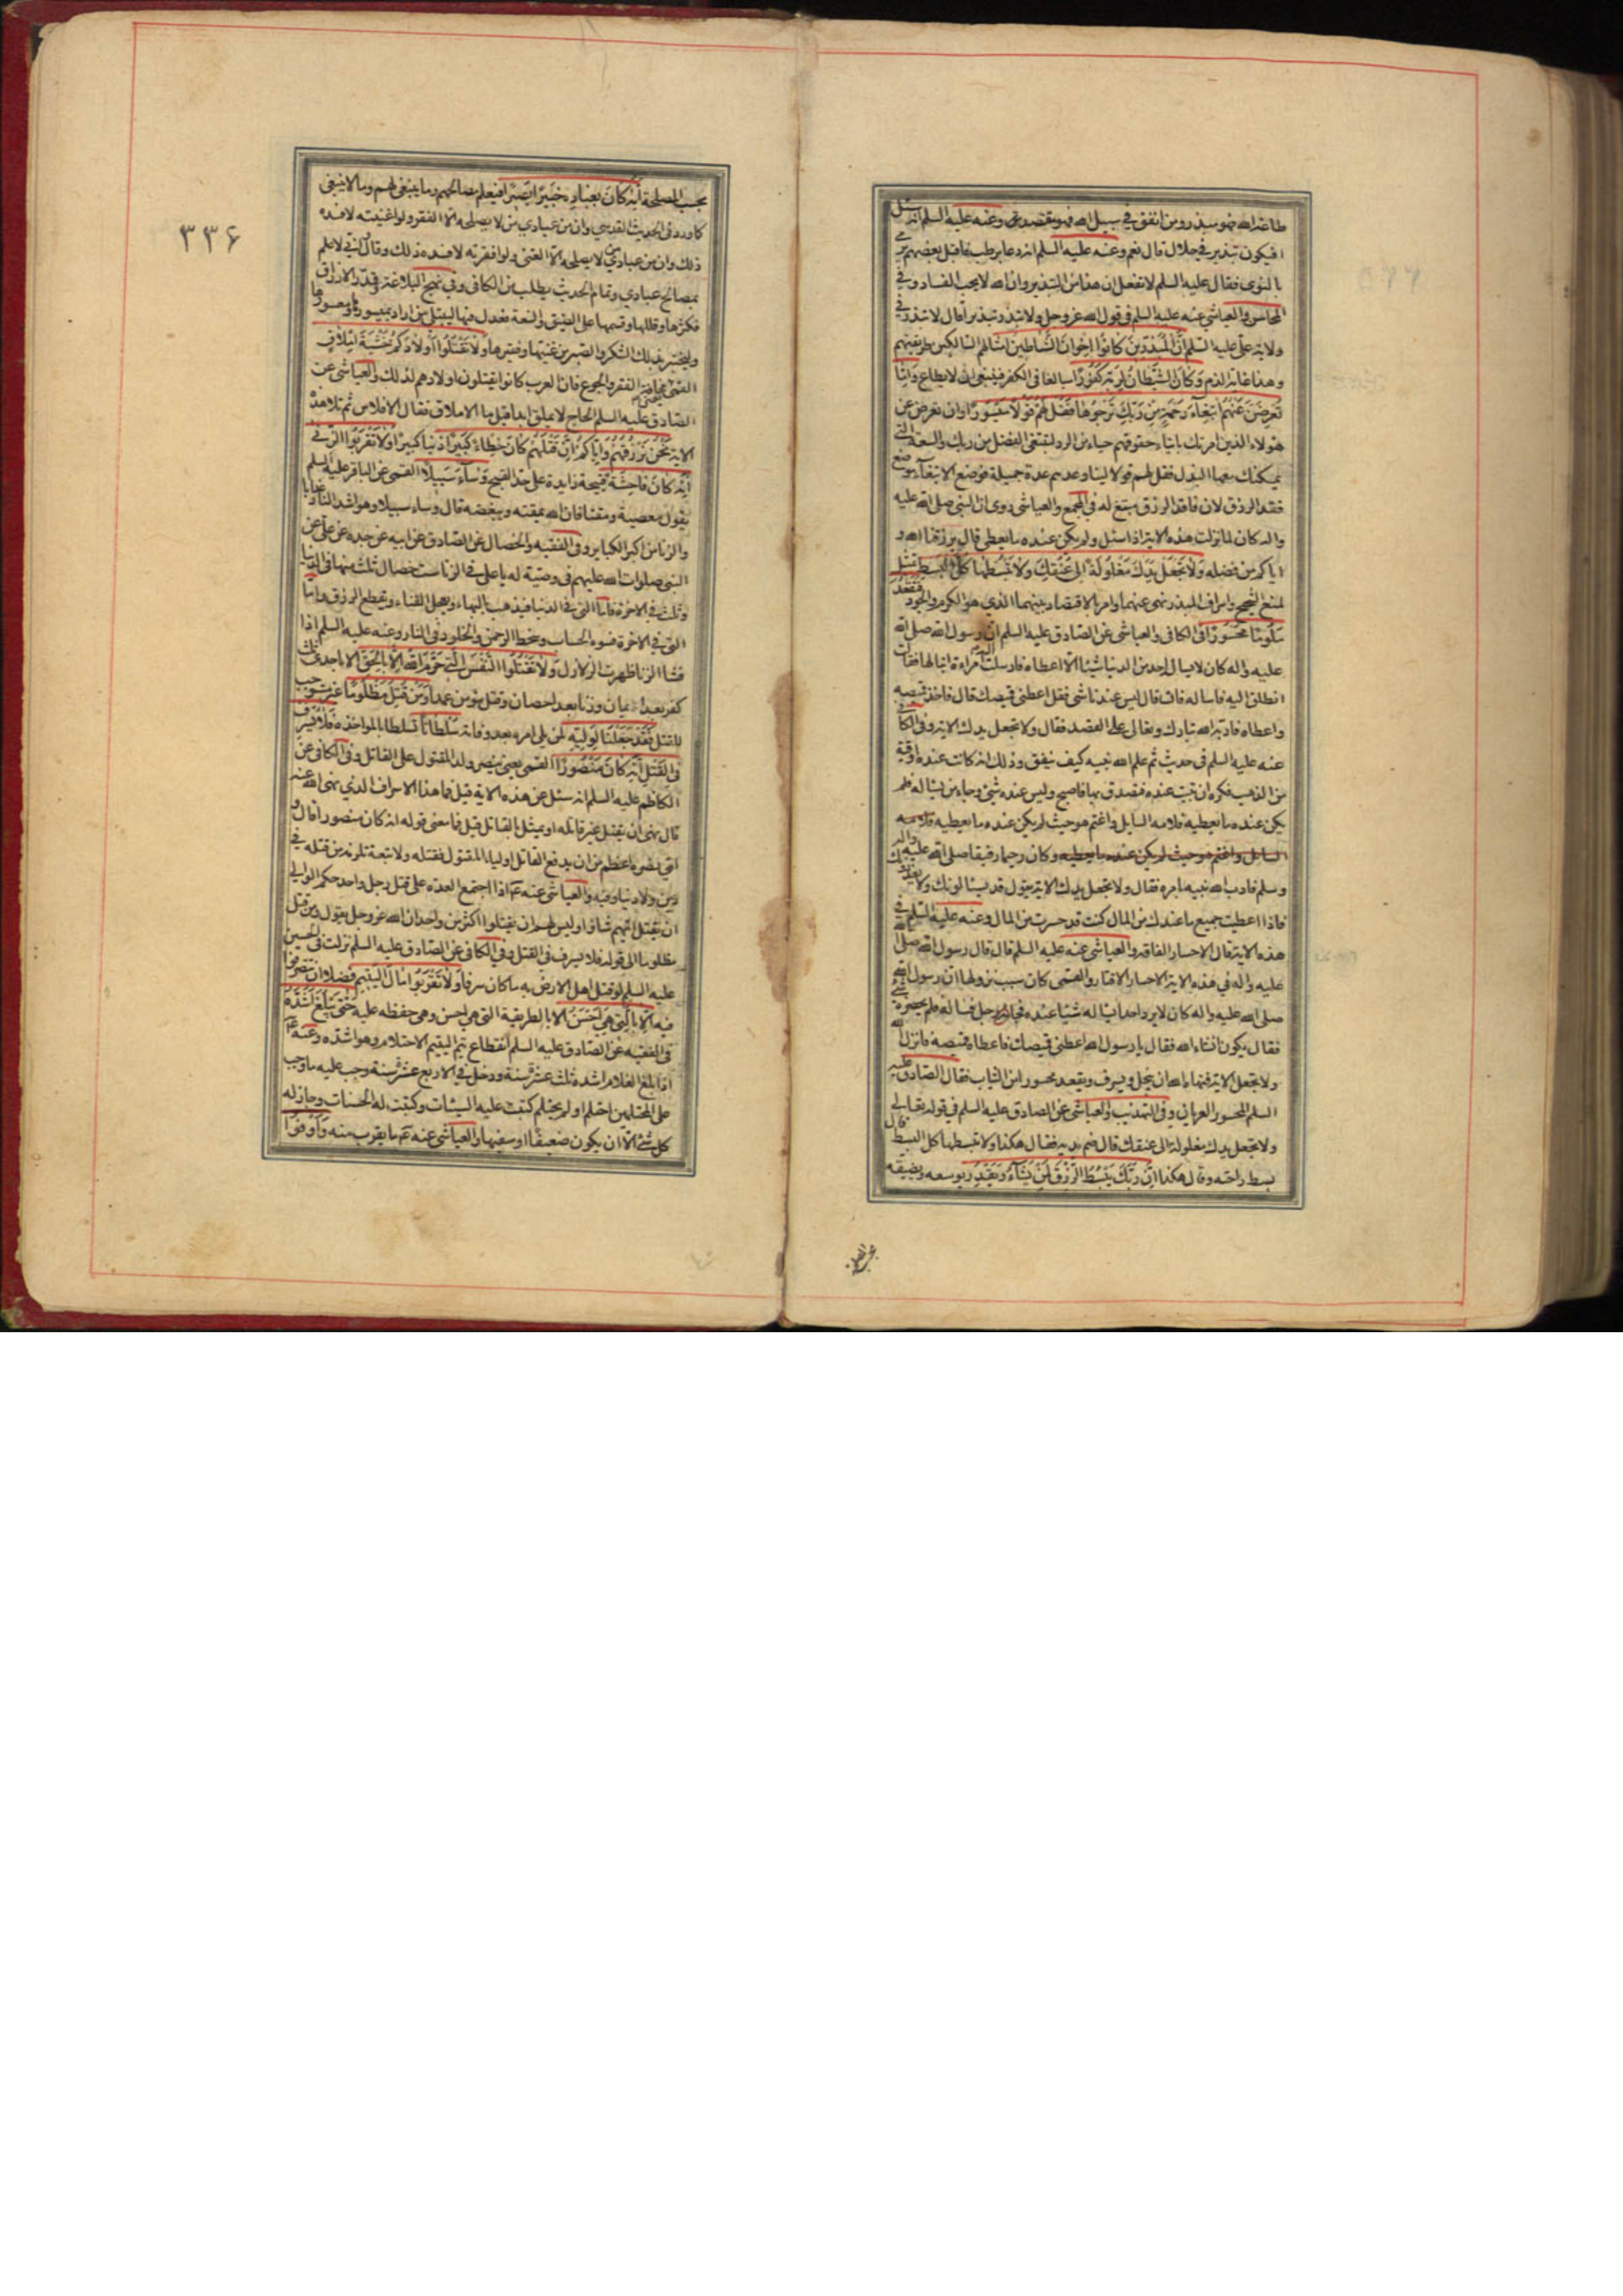 طاعة الله فهو مبذر ومن انفق في سبيل الله فهو مقتصد وعنه عليه السلم انه سئل
افيكون تبذير في حلال قال نعم وعنه عليه السلم انه دعا برطب فاقبل بعضهم يرمي
بالنوى فقال عليه السلم لا تفعل ان هذا من التبذير وان الله لا يحب الفساد وفي
المحاسن والعياشي عنه عليه السلم في قول الله عز وجل ولا تبذر تبذيرا قال لا تبذر في
ولاية علي عليه السلم إن المبذرين كانوا إخوان الشياطين امثالهم السالكين طريقتهم
وهذا غاية الذم وكان الشيطان لربه كفورا مبالغا في الكفر فينبغي ان لا يطاع وإما
تعرضن عنهم ابتغاء رحمة من ربك ترجوها فقل لهم قولا ميسورا وان تعرض عن
هؤلاء الذين امرتك بايتاء حقوقهم حياء من الرد لتبتغي الفضل من ربك والسعة التي
يمكنك معها البذل فقل لهم قولا لينا وعدهم عدة جميلة فوضع الابتغاء موضع
فقد الرزق لان فاقد الرزق مبتغ له في المجمع والعياشي روى ان النبي صلى الله عليه
واله كان لما نزلت هذه الاية اذا سئل ولم يكن عنده ما يعطي قال يرزقنا الله و
اياكم من فضله ولا تجعل يدك مغلولة إلى عنقك ولا تبسطها كل البسط تمثيل
لمنع الشحيح واسراف المبذر نهى عنهما وامر بالاقتصاد بينهما الذي هو الكرم والجود فتقعد
ملوما محسورا في الكافي والعياشي عن الصادق عليه السلم ان رسول الله صلى الله
عليه واله كان لا يسال احد من الدنيا شيئا الا اعطاه فارسلت اليه امراءة ابنا لها فقالت
انطلق اليه فاساله فان قال ليس عندنا شي فقل اعطني قميصك قال فاخذ قميصه
واعطاه فادبه الله تبارك وتعالى على القصد فقال ولا تجعل يدك الاية وفي الكافي
عنه عليه السلم في حديث ثم علم الله نبيه كيف ينفق وذلك انه كانت عنده اوقية
من الذهب فكره ان تبيت عنده فتصدق بها فاصبح وليس عنده شيئ وجاءه من يساله فلم
يكن عنده ما يعطيه فلامه السايل واغتم هو حيث لم يكن عنده ما يعطيه فلامه
السايل واغتم هو حيث لم يكن عنده ما يعطيه وكان رحيما رفيقا صلى الله عليه واله
وسلم فادب الله نبيه بامره فقال ولا تجعل يدك الاية يقول قد يسالونك ولا يعذرونك
فاذا اعطيت جميع ما عندك من المال كنت قد حسرت من المال وعنه عليه السلم في
هذه الاية قال الاحسار الفاقة والعياشي عنه عليه السلم قال قال رسول الله صلى الله
عليه واله في هذه الاية الاحسار الاقتار والقمي كان سبب نزولها ان رسول الله
صلى الله عليه واله كان لا يرد احدا يساله شيئا عنده فجاءه رجل فساله فلم يحضره شئ
فقال يكون انشاء الله فقال يا رسول الله اعطني قميصك فاعطاه قميصه فانزل الله
ولا تجعل الاية فنهاه الله ان يبخل ويسرف ويقعد محسورا من الثياب فقال الصادق عليه
السلم المحسور العريان وفي التهذيب والعياشي عن الصادق عليه السلم في قوله تعالى
ولا تجعل يدك مغلولة الى عنقك قال ضم يديه فقال هكذا ولا تبسطها كل البسط قال
بسط راحته وقال هكذا إن ربك يبسط الرزق لمن يشاء ويقدر يوسعه ويضيقه
٣٣۶
بحسب المصلحة إنه كان بعباده خبيرا بصيرا فيعلم مصالحهم وما ينبغي لهم وما لا ينبغي
كما ورد في الحديث القدسي وان من عبادي من لا يصلحه الا الفقر ولو اغنيته لافسده
ذلك وان من عبادي من لا يصلحه الا الغنى ولو افقرته لافسده ذلك وقال اني لاعلم
بمصالح عبادي وتمام الحديث يطلب من الكافي وفي نهج البلاغة وقدر الارزاق
فكثرها وقللها وقسمها على الضيق والسعة فعدل فيها ليبتلي من اراد بميسورها ومعسورها
وليختبر بذلك الشكر والصبر من غنيها وفقيرها ولا تقتلوا أولادكم خشية إملاق
القمي مخافة الفقر والجوع فان العرب كانوا يقتلون اولادهم لذلك والعياشي عن
الصادق عليه السلم الحاج لا يملق ابدا قيل ما الاملاق فقال الافلاس ثم تلا هذه
الاية نحن نرزقهم وإياكم إن قتلهم كان خطاء كبيرا ذنبا كبيرا ولا تقربوا الزنى
إنه كان فاحشة قبيحة زايدة على حد القبح وساء سبيلا القمي عن الباقر عليه السلم
يقول معصية ومقتا فان الله يمقته ويبغضه قال وساء سبيلا وهو اشد الناس عذابا
والزنا من اكبر الكباير وفي الفقيه والخصال عن الصادق عن ابيه عن جده عن علي عن
النبي صلوات الله عليهم في وصيته له يا علي في الزنا ست خصال ثلث منها في الدنيا
وثلث في الاخرة فاما التي في الدنيا فيذهب بالبهاء ويعجل الفناء ويقطع الرزق واما
التي في الاخرة فسوء الحساب وسخط الرحمن والخلود في النار وعنه عليه السلم اذا
فشا الزنا ظهرت الزلازل ولا تقتلوا النفس التي حرم الله إلا بالحق الا باحدى ثلث
كفر بعد ايمان وزنا بعد احصان وقتل مؤمن عمدا ومن قتل مظلوما غير مستوجب
للقتل فقد جعلنا لوليه لمن يلي امره بعد وفاته سلطانا تسلطا بالمواخذة فلا يسرف
في القتل إنه كان منصورا القمي يعني ينصر ولد المقتول على القاتل وفي الكافي عن
الكاظم عليه السلم انه سئل عن هذه الاية قيل فما هذا الاسراف الذي نهى الله عنه
قال نهى ان يقتل غير قاتله او يمثل بالقاتل قيل فما معنى قوله انه كان منصورا قال و
اي نصرة اعظم من ان يدفع القاتل اولياء المقتول فقتله ولا تبعة تلزمه من قتله في
دين ولا دنيا وفيه والعياشي عنه ع اذا اجتمع العدة على قتل رجل واحد حكم الوالي
ان يقتل ايهم شاؤا وليس لهم ان يقتلوا اكثر من واحد ان الله عز وجل يقول ومن قتل
مظلوما الى قوله فلا يسرف في القتل وفي الكافي عن الصادق عليه السلم نزلت في الحسين
عليه السلم لو قتل اهل الارض به ما كان سرفا ولا تقربوا مال اليتيم فضلا ان تتصرفوا
فيه إلا بالتي هي أحسن الا بالطريقة التي هي احسن وهي حفظه عليه حتى يبلغ أشده
في الفقيه عن الصادق عليه السلم انقطاع يتم اليتيم الاحتلام وهو اشده وعنه ع
اذا بلغ الغلام اشده ثلث عشرة سنة ودخل في الاربع عشرة سنة وجب عليه ما وجب
على المحتلمين احتلم او لم يحتلم كتبت عليه السيئات وكتبت له الحسنات وجاز له
كل شئ الا ان يكون ضعيفا او سفيها والعياشي عنه ع ما يقرب منه وأوفوا